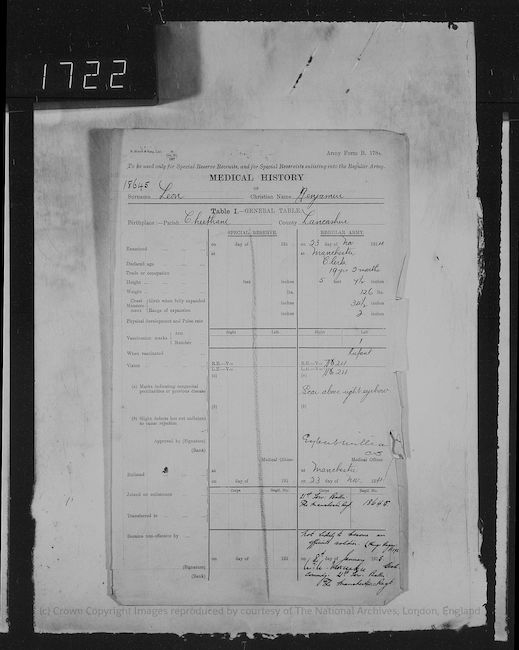 1722
Army Form B. 178A.
To be used only for Special Reserve Recruits, and for Special Reservists enlisting into the Regular Army.
MEDICAL HISTORY
OF
18645
Surname Leon Christian Name Benjamin
Table I.—GENERAL TABLE.
Birthplace—Parish Cheetham County Lancashire
SPECIAL RESERVE. REGULAR ARMY.
Examined on day of 191 on 23 day of Nov 1914
at at Manchester
Declared age
Clerk
Trade or occupation 19 yrs 2 months
Height feet inches 5 feet inches
Weight lbs. 126 lbs.
Chest Measurement Girth when fully expanded inches inches
Range of expansion inches 2 inches
Physical development and Pulse rate
Right Left Right Left
Vaccination marks Arm
Number 1
When vaccinated Infant
Vision R.E.—V= R.E.—V=
L.E.—V= L.E.—V=
(a) Marks indicating congenital peculiarities or previous disease (a) (a)
Scar above right eyebrow
(b) Slight defects but not sufficient to cause rejection (b) (b)
Approved by (Signature)
(Rank)
Medical Officer Medical Officer
Enlisted at at Manchester
on day of 191 on 23 day of Nov. 1914
Corps Regtl. No. Corps Regtl. No.
Joined on enlistment 21st Ser. Batn
The Manchester Regt 18645
Transferred to
Became non-effective by Not likely to become an
efficient soldier
on day of 191 on day of January 191
(Signature)
(Rank) Comdg. 21st Ser. Batn
The Manchester Regt
(c) Crown Copyright Images reproduced by courtesy of The National Archives, London, England.